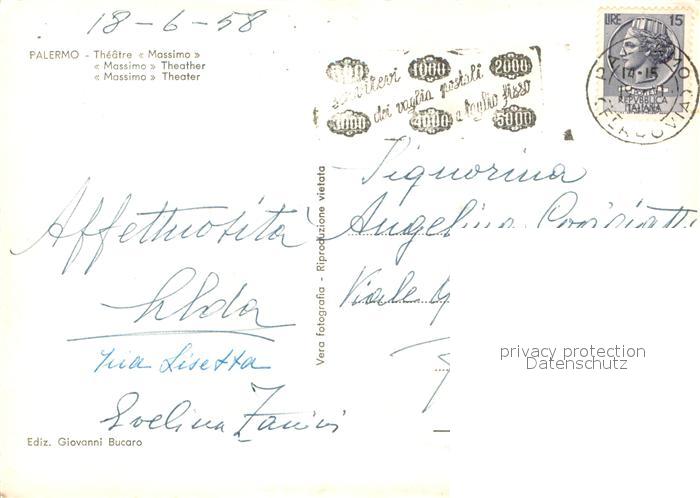 18-6-58
PALERMO - Théâtre « Massimo »
« Massimo » Theather
« Massimo » Theater
LIRE 15
REPVBBLICA
ITALIANA
14-15
FERROVIA
1000 2000
servitevi
dei vaglia postali
a taglio fisso
4000 5000
Affettuosità
Ina Lisetta
Evelina Zanini
Vera fotografia - Riproduzione vietata
Signorina
Angelina
Viale
privacy protection
Datenschutz
Ediz. Giovanni Bucaro